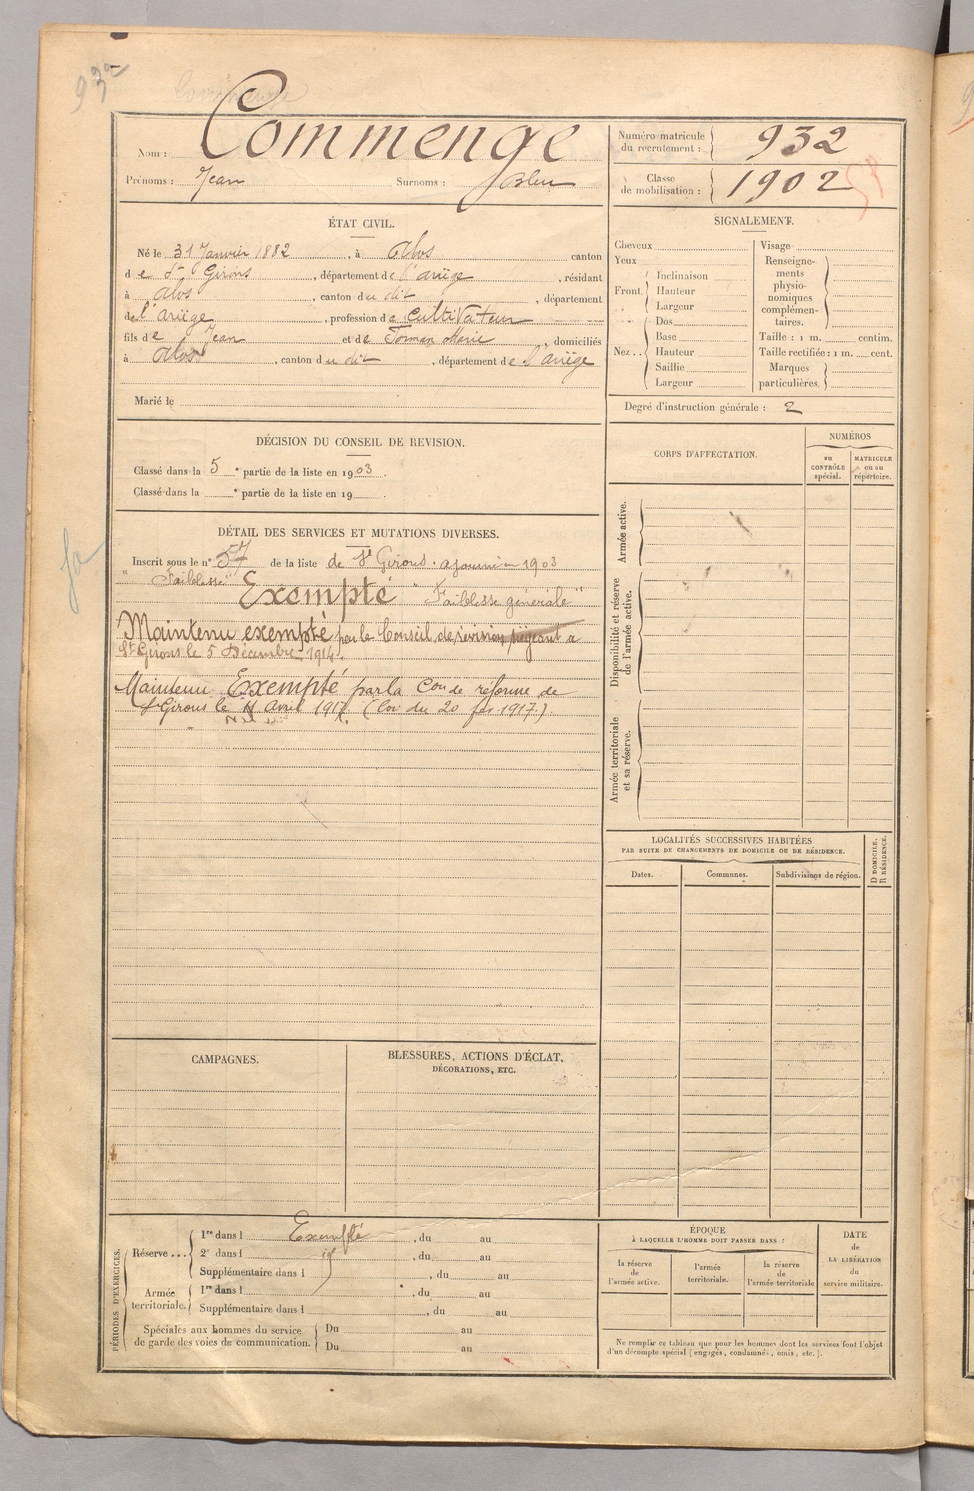 932
Commenge
Nom : Commenge
Prénoms : Jean Surnoms : Bleu
Numéro matricule du recrutement : 932
Classe de mobilisation : 1902
ÉTAT CIVIL.
Né le 31 Janvier 1882, à Alos canton
de St Girons, département de l'ariège, résidant
à Alos, canton du dit, département
de l'ariège, profession de cultivateur
fils de Jean et de Marie, domiciliés
à Alos, canton du dit, département de l'ariège
Marié le
SIGNALEMENT.
Cheveux
Yeux
Front
Inclinaison
Hauteur
Largeur
Nez
Dos
Base
Hauteur
Saillie
Largeur
Visage
Renseignements physionomiques complémentaires.
Taille : 1 m. centim.
Taille rectifiée : 1 m. cent.
Marques particulières.
Degré d'instruction générale : 2
DÉCISION DU CONSEIL DE REVISION.
Classé dans la 5e partie de la liste en 1903.
Classé dans la e partie de la liste en 19 .
CORPS D'AFFECTATION.
NUMÉROS
au CONTRÔLE spécial.
MATRICULE ou au répertoire.
Armée active.
Disponibilité et réserve de l'armée active.
Armée territoriale et sa réserve.
DÉTAIL DES SERVICES ET MUTATIONS DIVERSES.
Inscrit sous le n° 57 de la liste de St Girons. ajourné en 1903
"Faiblesse" Exempté "Faiblesse générale"
Maintenu exempté par le Conseil de revision siégeant à
St Girons le 5 Décembre 1914.
Maintenu Exempté par la Con de réforme de
St Girons le avril 1917. (loi du 20 fév 1917.)
LOCALITÉS SUCCESSIVES HABITÉES
PAR SUITE DE CHANGEMENTS DE DOMICILE OU DE RÉSIDENCE.
Dates.
Communes.
Subdivisions de région.
D DOMICILE.
R RÉSIDENCE.
CAMPAGNES.
BLESSURES, ACTIONS D'ÉCLAT,
DÉCORATIONS, ETC.
PÉRIODES D'EXERCICES.
Réserve ...
1re dans l Exempté, du au
2e dans l , du au
Supplémentaire dans l , du au
Armée territoriale.
1re dans l , du au
Supplémentaire dans l , du au
Spéciales aux hommes du service de garde des voies de communication.
Du au
Du au
ÉPOQUE
À LAQUELLE L'HOMME DOIT PASSER DANS :
la réserve de l'armée active.
l'armée territoriale.
la réserve de l'armée territoriale
DATE de LA LIBÉRATION du service militaire.
Ne remplir ce tableau que pour les hommes dont les services font l'objet
d'un décompte spécial (engagés, condamnés, omis, etc.).